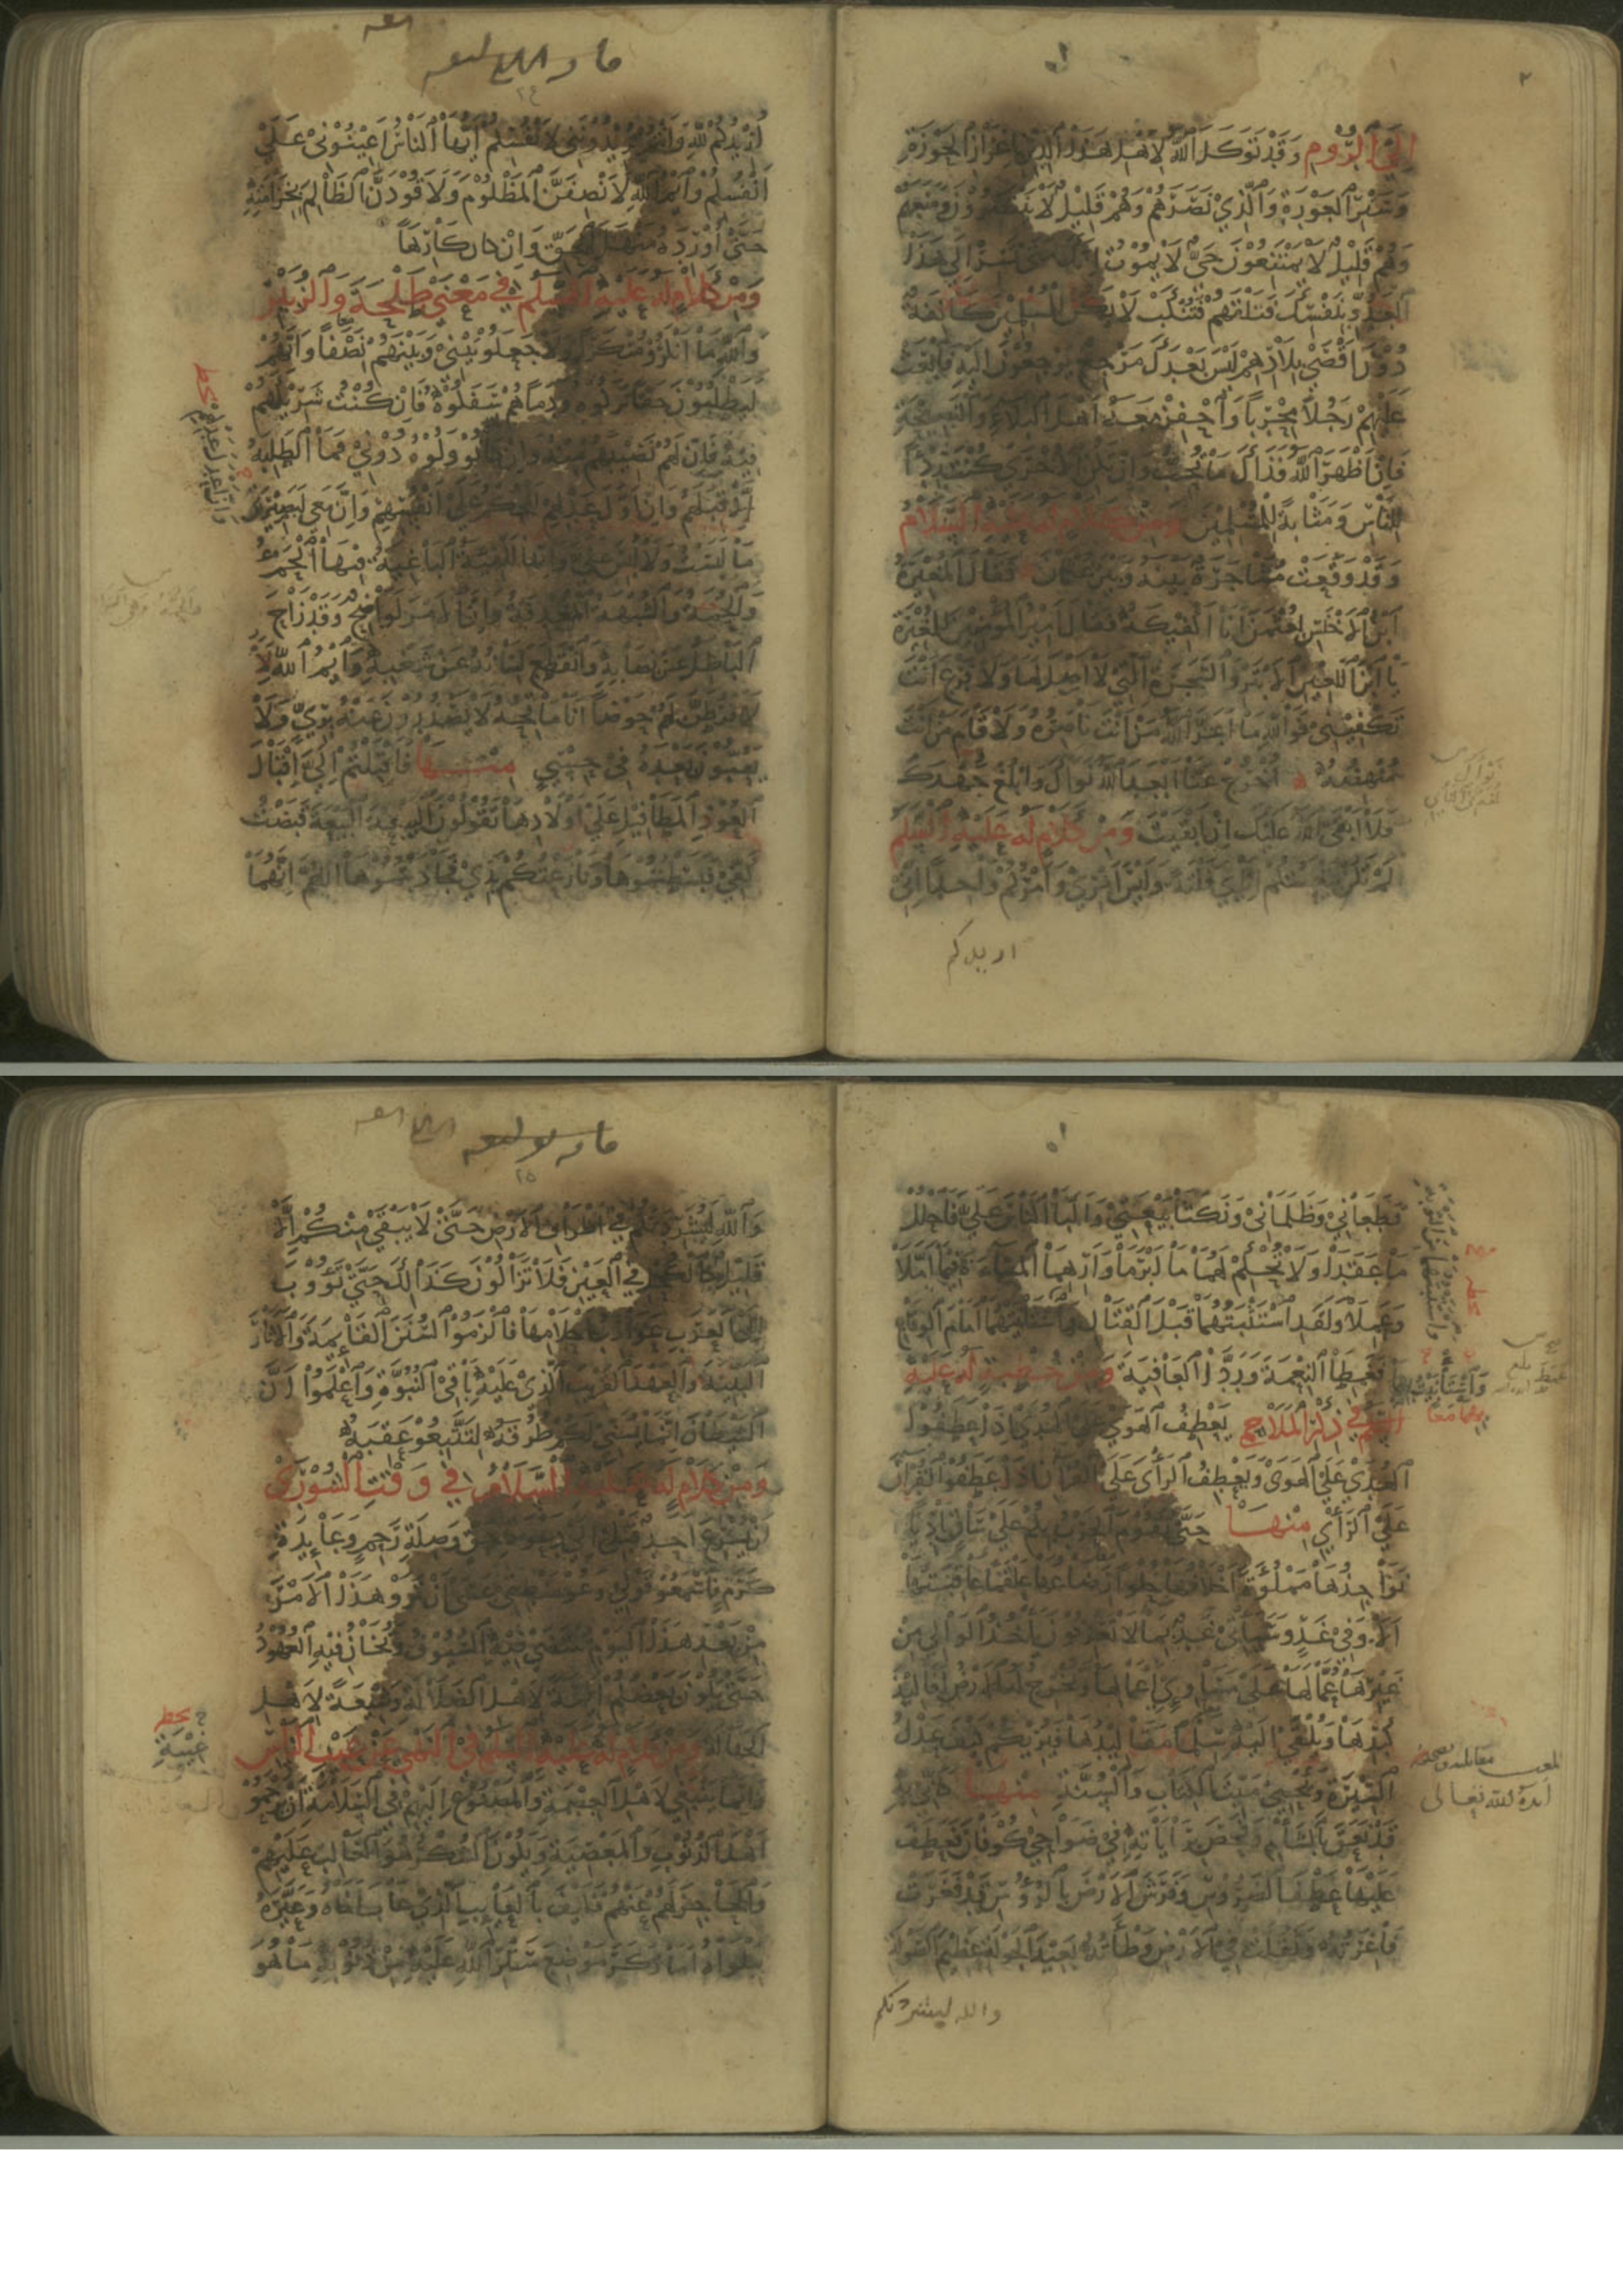 إلى الروم وقد توكل الله لأهل هذا الدين بإعزاز الحوزة
وستر العورة والذي نصرهم وهم قليل لا ينتصرون ومنعهم
وهم قليل لا يمتنعون حي لا يموت إنك متى تسر إلى هذا
العدو بنفسك فتلقهم فتنكب لا يكن للمسلمين كانفة
دون أقصى بلادهم ليس بعدك مرجع يرجعون إليه فابعث
عليهم رجلا مجربا واحفز معه أهل البلاء والنصيحة
فإن أظهر الله فذاك ما تحب وإن تكن الأخرى كنت ردءا
للناس ومثابة للمسلمين ومن كلام له عليه السلام
وقد وقعت مشاجرة بينه وبين عثمان فقال المغيرة
ابن الأخنس لعثمن أنا أكفيكه فقال أمير المؤمنين للمغيرة
يا ابن اللعين الأبتر والشجرة التي لا أصل لها ولا فرع أنت
تكفيني فوالله ما أعز الله من أنت ناصره ولا قام من أنت
منهضه اخرج عنا أبعد الله نواك وابلغ جهدك
فلا أبقى الله عليك إن أبقيت ومن كلام له عليه السلم
لم تكن بيعتكم إياي فلتة وليس أمري وأمركم واحدا إني
اريدكم
أريدكم لله وأنتم تريدونني لأنفسكم أيها الناس أعينوني على
أنفسكم وأيم الله لأنصفن المظلوم ولأقودن الظالم بخزامته
حتى أورده منهل الحق وإن كان كارها
ومن كلام له عليه السلم في معنى طلحة والزبير
والله ما أنكروا منكرا ولا جعلو بيني وبينهم نصفا وإنهم
ليطلبون حقا تركوه ودما هم سفكوه فإن كنت شريكهم
فيه فإن لهم نصيبهم منه وإن كانوا ولوه دوني فما الطلبة
إلا قبلهم وإن أول عدلهم للحكم على أنفسهم وإن معي لبصيرتي
ما لبست ولا لبس علي وإنها للفئة الباغية فيها الحمأ
والحمة والشبهة المغدفة وإن الأمر لواضح وقد زاح
الباطل عن نصابه وانقطع لسانه عن شغبه وأيم الله
لأفرطن لهم حوضا أنا ماتحه لا يصدرون عنه بري ولا
يعبون بعده في حسي منها فأقبلتم إلي إقبال
العوذ المطافيل على أولادها تقولون البيعة البيعة قبضت
كفي فبسطتموها ونازعتكم يدي فجاذبتموها اللهم إنهما
قطعاني وظلماني ونكثا بيعتي وألبا الناس علي فاحلل
ما عقدا ولا تحكم لهما ما أبرما وأرهما المساءة فيما أملا
وعملا ولقد استثبتهما قبل القتال واستأنيت بهما أمام الوقاع
فغمطا النعمة وردا العافية ومن خطبة له عليه
السلم في ذكر الملاحم يعطف الهوى على الهدى إذا عطفوا
الهدى على الهوى ويعطف الرأي على القرآن إذا عطفوا القرآن
على الرأي منها حتى تقوم الحرب بكم على ساق باديا
نواجذها مملوءة أخلافها حلوا رضاعها علقما عاقبتها
ألا وفي غد وسيأتي غد بما لا تعرفون يأخذ الوالي من
غيرها عمالها على مساوئ أعمالها وتخرج له الأرض أفاليذ
كبدها وتلقي إليه سلما مقاليدها فيريكم كيف عدل
السيرة ويحيي ميت الكتاب والسنة منها كأني به
قد نعق بالشأم وفحص براياته في ضواحي كوفان فعطف
عليها عطف الضروس وفرش الأرض بالرؤس قد فغرت
فاغرته وثقلت في الأرض وطأته بعيد الجولة عظيم الصولة
والله ليشردنكم
والله ليشردنكم في أطراف الأرض حتى لا يبقى منكم إلا
قليل كالكحل في العين فلا تزالون كذلك حتى تؤوب
إلى العرب عوازب أحلامها فالزموا السنن القائمة والآثار
البينة والعهد القريب الذي عليه باقي النبوة واعلموا أن
الشيطان إنما يسني لكم طرقه لتتبعو عقبه
ومن كلام له عليه السلام في وقت الشورى
لن يسرع أحد قبلي إلى دعوة حق وصلة رحم وعائدة
كرم فاسمعو قولي وعو منطقي عسى أن ترو هذا الأمر
من بعد هذا اليوم تنتضى فيه السيوف وتخان فيه العهود
حتى يكون بعضكم أئمة لأهل الضلالة وشيعة لأهل
الجهالة ومن كلام له عليه السلم في النهي عن عيب الناس
وإنما ينبغي لأهل العصمة والمصنوع إليهم في السلامة أن يرحمو
أهل الذنوب والمعصية ويكون الشكر هو الغالب عليهم
والحاجز لهم عنهم فكيف بالعائب الذي عاب أخاه وعيره
ببلواه أما ذكر موضع ستر الله عليه من ذنوبه ما هو